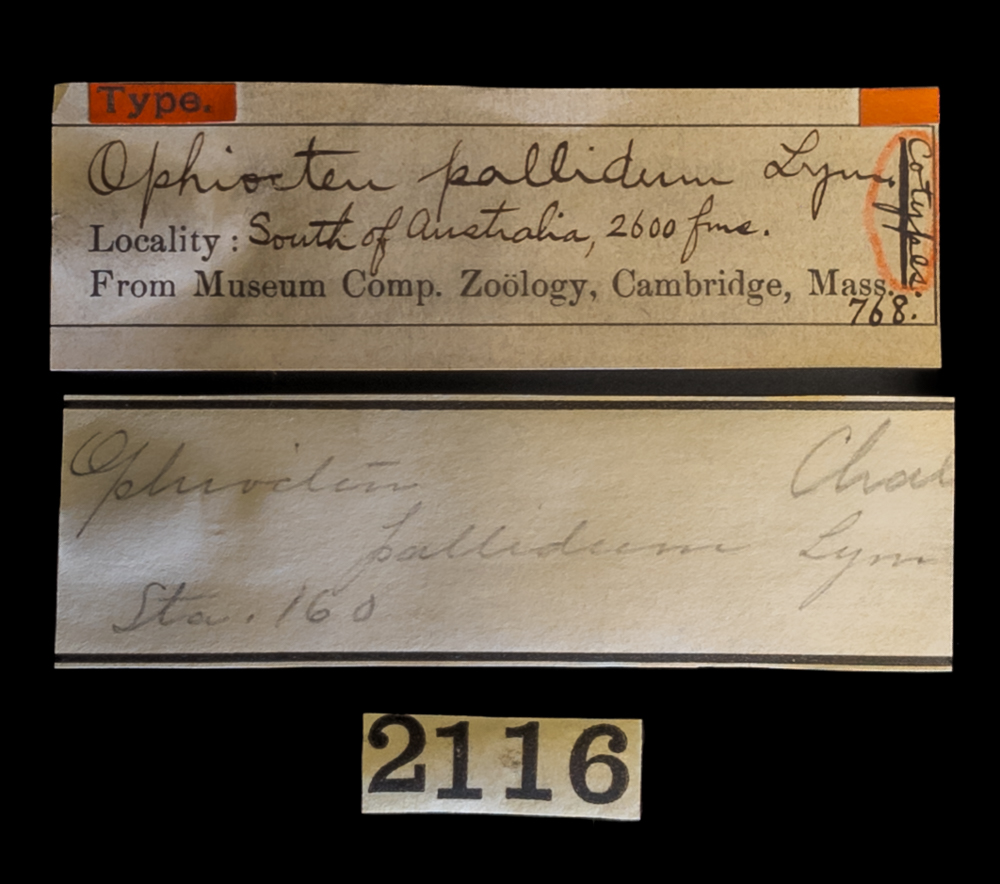 Type.
Ophiocten pallidum Lym.
Cotypes.
Locality: South of Australia, 2600 fms.
From Museum Comp. Zoölogy, Cambridge, Mass.
768.
Ophiocten Chal
pallidum Lym
Sta. 160
2116